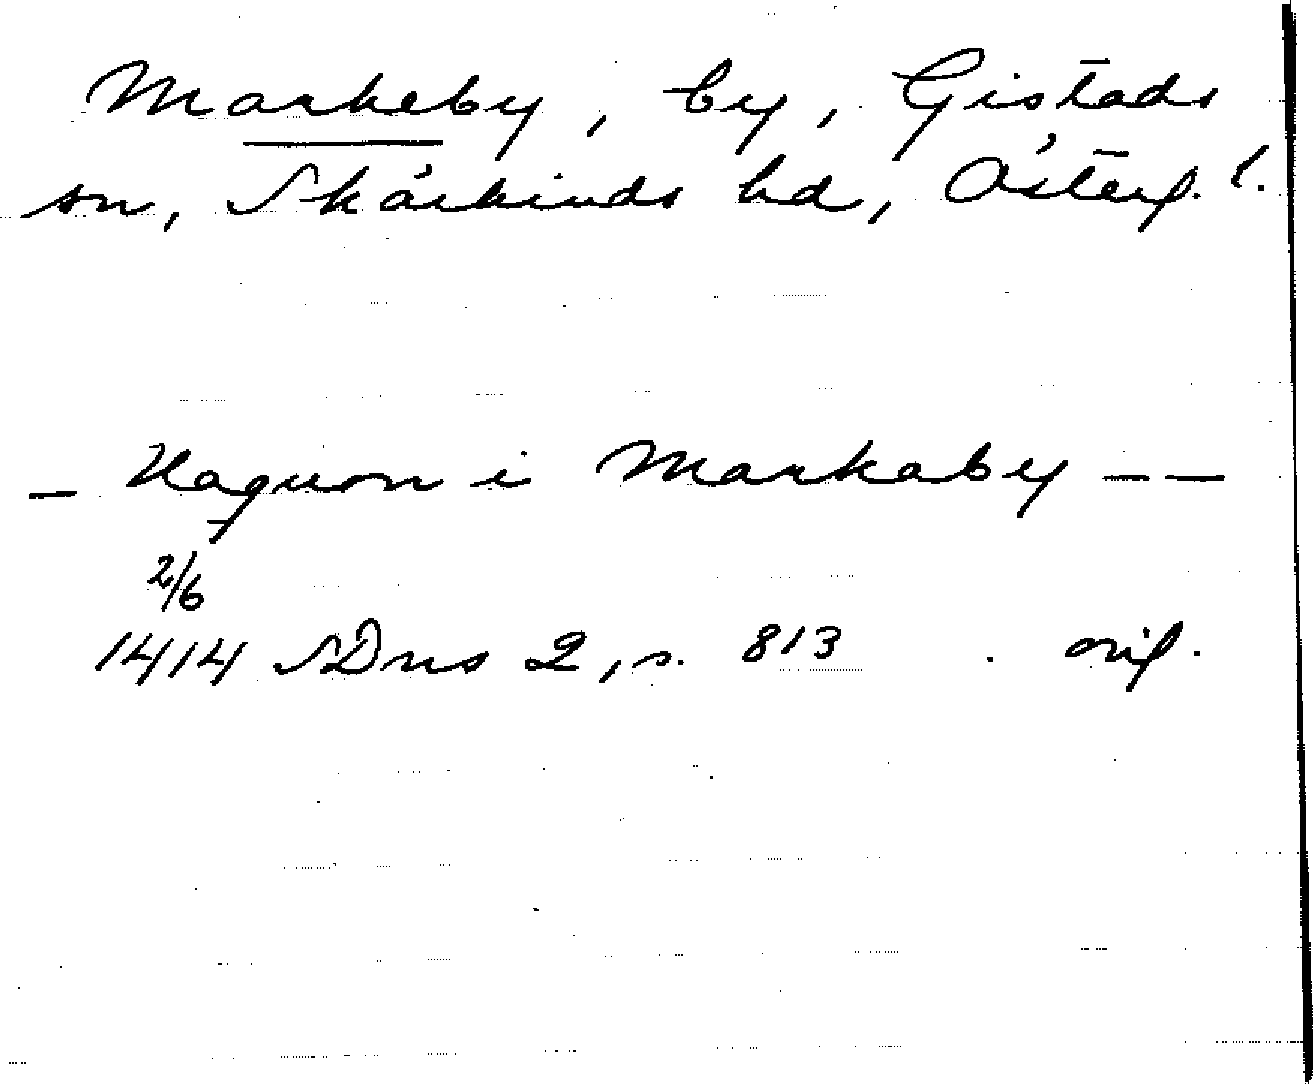 Markeby, by, Gistads
sn, Skärkinds hd, Österg. l.
— Haquon i Markaby — —
2/6
1414 SDns 2, s. 813 . orig.